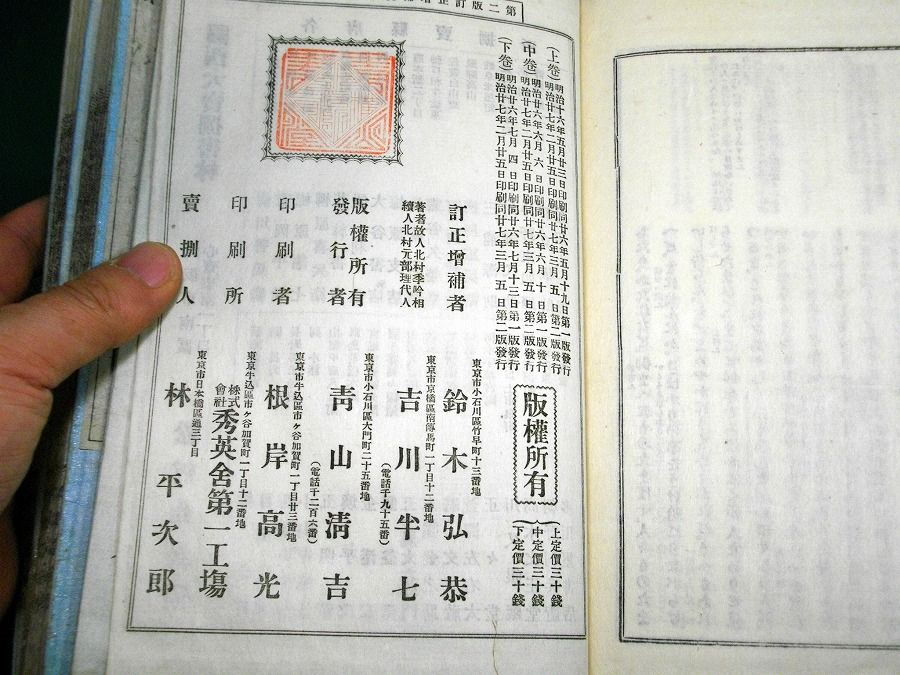 第二版訂正增補
(上卷)明治廿六年五月廿三日印刷同廿六年五月廿九日第一版發行
明治廿七年二月廿五日印刷同廿七年三月五日第二版發行
(中卷)明治廿六年六月六日印刷同廿六年六月十日第一版發行
明治廿七年二月廿五日印刷同廿七年三月五日第二版發行
(下卷)明治廿六年七月四日印刷同廿六年七月十三日第一版發行
明治廿七年二月廿五日印刷同廿七年三月五日第二版發行
版權所有
上定價三十錢
中定價三十錢
下定價三十錢
訂正增補者
東京市小石川區竹早町十三番地
鈴木弘恭
著者故人北村季吟相
續人北村元部理代人
東京市京橋區南傳馬町一丁目十二番地
吉川半七
(電話千九十五番)
版權所有
發行者
東京市小石川區大門町二十五番地
靑山淸吉
(電話千二百六番)
印刷者
東京市牛込區市ヶ谷加賀町一丁目廿三番地
根岸高光
印刷所
東京牛込區市ヶ谷加賀町一丁目十二番地
株式會社秀英舍第一工塲
賣捌人
東京市日本橋區通三丁目
林平次郎